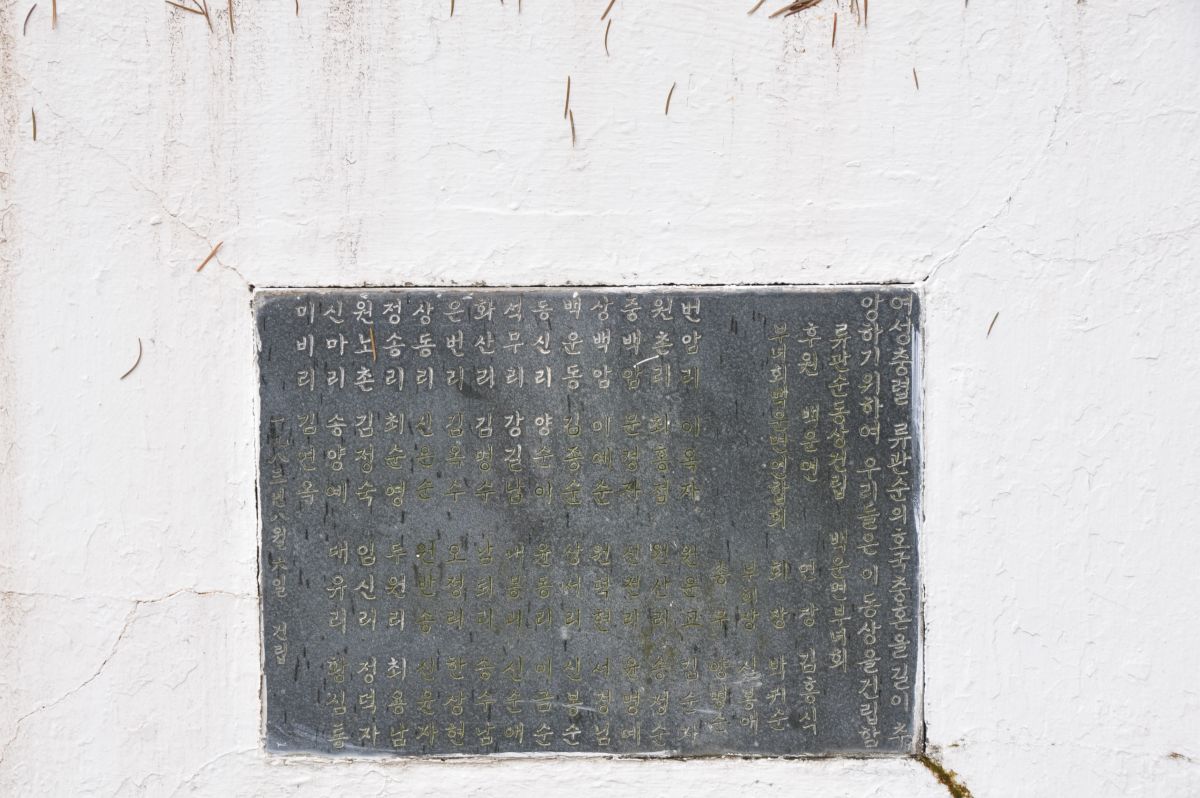 여성충렬 류관순의 호국충혼을 길이 추
앙하기 위하여 우리들은 이 동상을 건립함
류관순동상건립 백운면부녀회
후원 백운면 면장 김홍식
부녀회백운면연합회 회장 박귀순
부회장 신봉애
총무 양명순
번암리 이옥자 원운교 김순자
원촌리 원산리 송정순
중백암 문정자
상백암 이예순 원덕현 서정님
백운동 김종순 상서리 신봉순
동신리 양순이 윤동리 이금순
석무리 강길남 신순애
화산리 김명수 송수남
은번리 김옥수 오정리 한상현
상동리 신운순 원반송 신윤자
정송리 최순영 두원리 최용남
원노촌 김정숙 임신리 정덕자
신마리 송양예 대유리 황심동
미비리 김연옥
건립